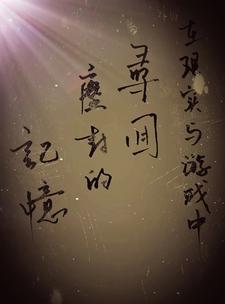 在现实与游戏中
寻回
塵封的
記憶